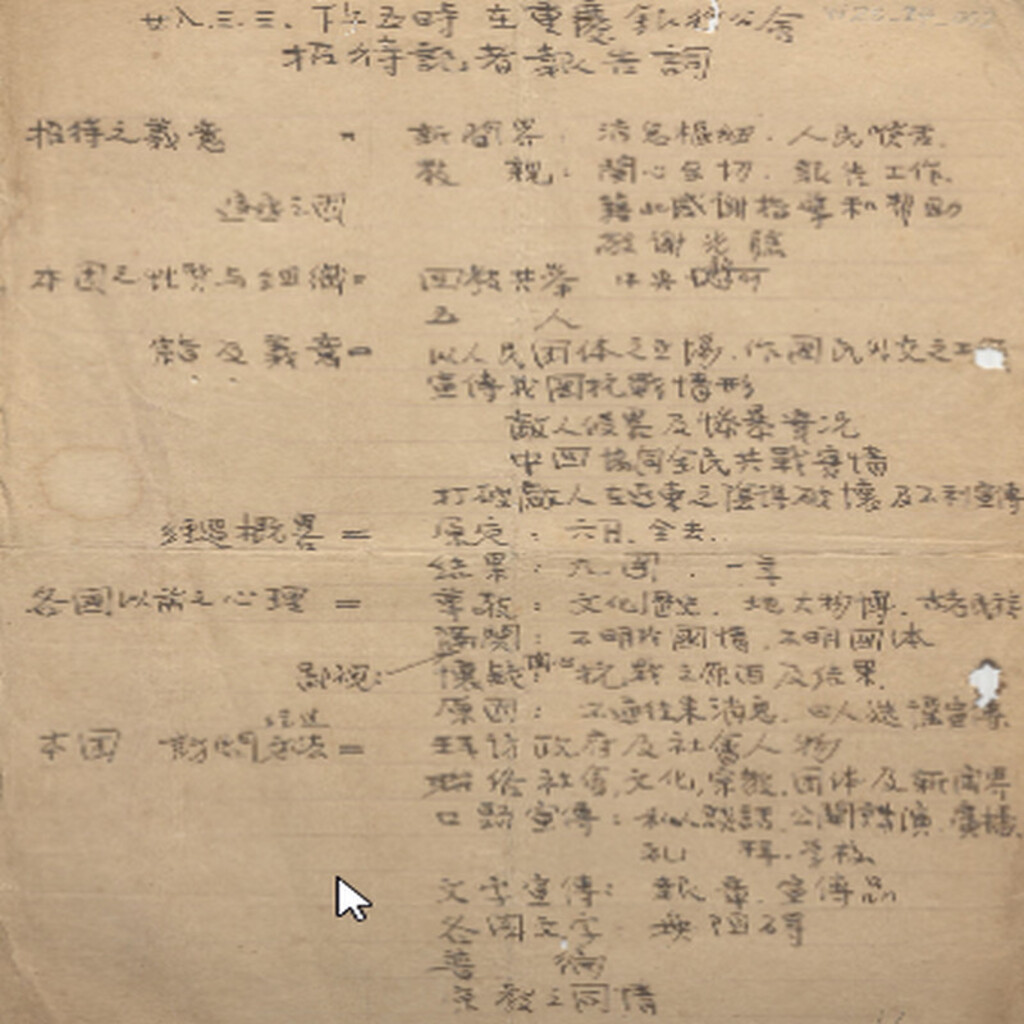 廿八.三.三. 下午五時 在重慶銀行公會
招待記者報告詞
招待之義意 = 新聞界: 消息樞紐. 人民喉舌.
教 親: 關心至切. 報告工作.
藉此感謝指導和幫助
敬謝光臨
本團之性質与組織= 回教共舉 中央
五 人
宗旨及義意= 以人民团体之立場. 作國民外交之工
宣傳我國抗戰情形
敵人侵畧及慘暴實况
中回協同全民共戰實情
打破敵人在近東之陰謀破壞及不利宣傳
經過概畧= 原定: 六月. 全去.
結果: 九國. 一年
各國以前之心理= 尊敬: 文化歷史. 地大物博. 古老民族
隔閡: 不明瞭國情. 不明團体
鄙視: 懷疑: 關心抗戰之原因及结果.
原因: 不通往來消息.
經过
本团 訪問方法= 拜訪政府及社會人物
联络社會, 文化, 宗教, 团体及新闻界
口頭宣傳: 私人談話. 公開講演. 廣播.
礼 拜. 学校
文字宣傳: 報章. 宣傳品
各國文字 無阻碍
普 徧
宗教之同情